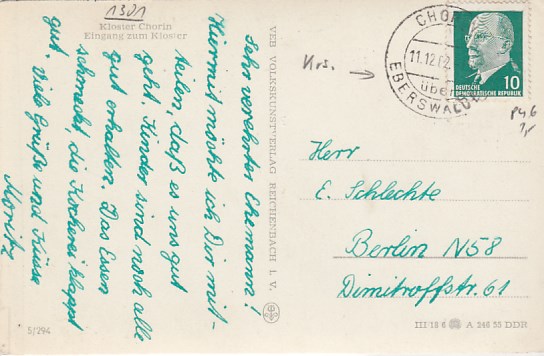 1301
Kloster Chorin
Eingang zum Kloster
Sehr verehrter Ehemann!
Hiermit möchte ich Dir mit-
teilen, daß es uns gut
geht. Kinder sind noch alle
gut erhalten. Das Essen
schmeckt, die Kocherei klappt
gut. Viele Grüße und Küsse
Moritz
5/294
VEB VOLKSKUNSTVERLAG REICHENBACH I. V.
Krs.
CHOR
11.12.62
über
EBERSWALDE
10
DEUTSCHE
DEMOKRATISCHE REPUBLIK
Herr
E. Schlechte
Berlin N58
Dimitroffstr. 61
III/18 6 A 246 55 DDR